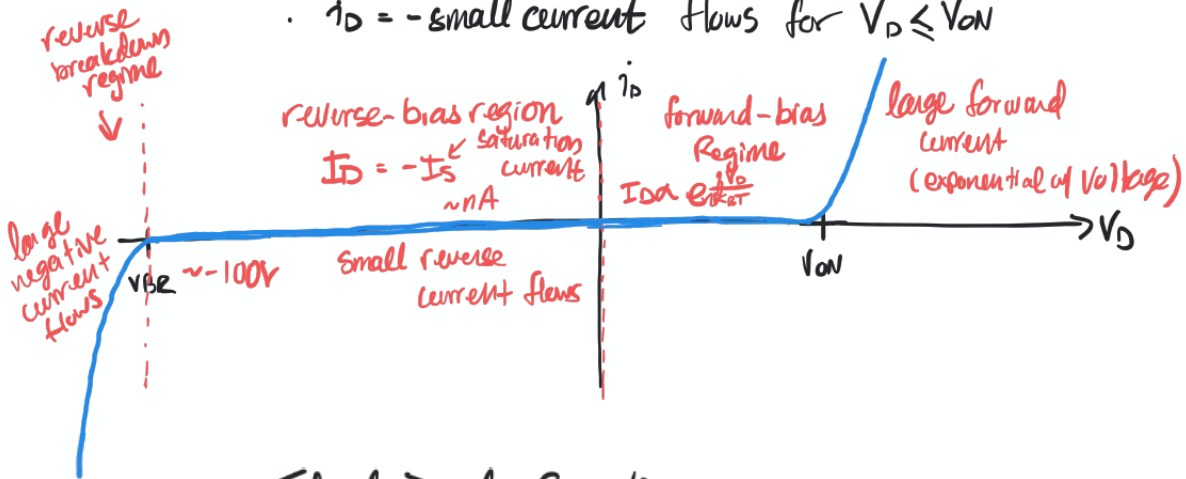 · iD = -small current flows for VD ≤ VON
reverse
breakdown
regime
reverse-bias region
ID = -IS
saturation
current
~nA
iD
forward-bias
Regime
IDα e
large forward
current
(exponential w/ Voltage)
large
negative
current
flows
VBR
~-100V
small reverse
current flows
VON
VD